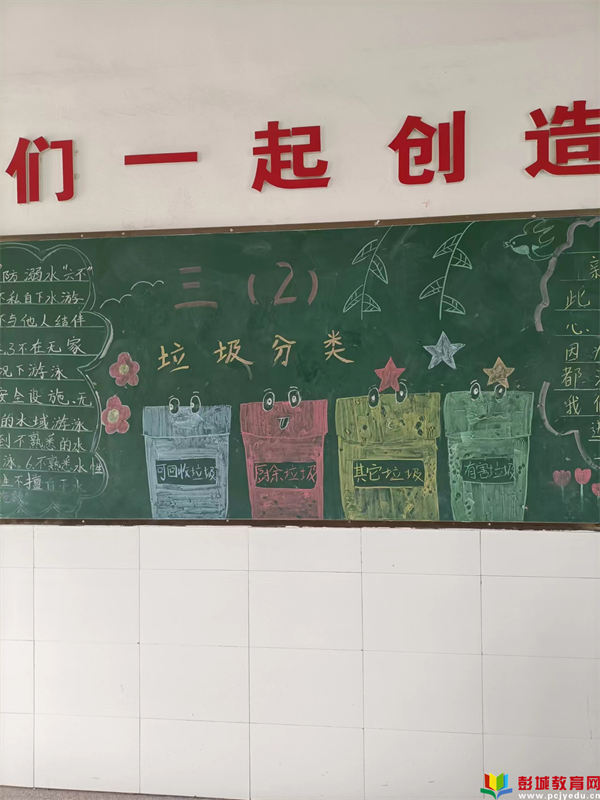 们一起创造
三（2）
垃圾分类
防溺水“六不”
不私自下水游
不与他人结伴
3不在无家
况下游泳
安全设施、无
的水域游泳
到不熟悉的水
泳、6.不熟悉水性
不擅自下水
可回收垃圾
厨余垃圾
其它垃圾
有害垃圾
新
此
心
因为
都
我们
进
彭城教育网
www.pcjyedu.cn